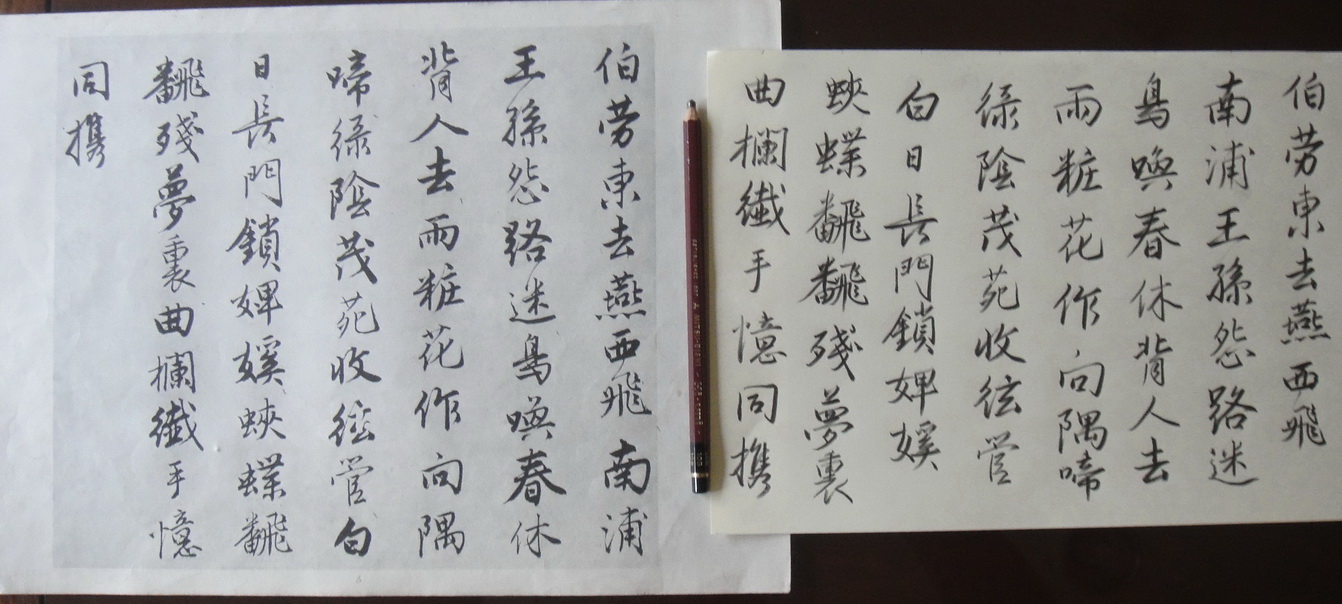 伯劳東去燕西飛南浦
王孫怨路迷鳥喚春休
背人去雨粧花作向隅
啼緑陰茂苑收絃管白
日長門鎖婢㜎蛺蝶飜
飜殘夢裏曲欄纖手憶
同携
伯劳東去燕西飛
南浦王孫怨路迷
鳥喚春休背人去
雨粧花作向隅啼
緑陰茂苑收絃管
白日長門鎖婢㜎
蛺蝶飜飜殘夢裏
曲欄纖手憶同携